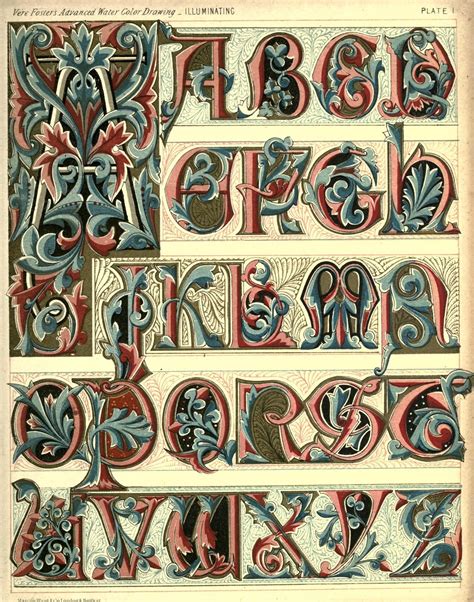 Vere Foster's Advanced Water Color Drawing _ ILLUMINATING PLATE I
A
A B C D
E F G h
I K L M N
O P Q R S T
U V W X Y Z
Marcus Ward & Co London & Belfast